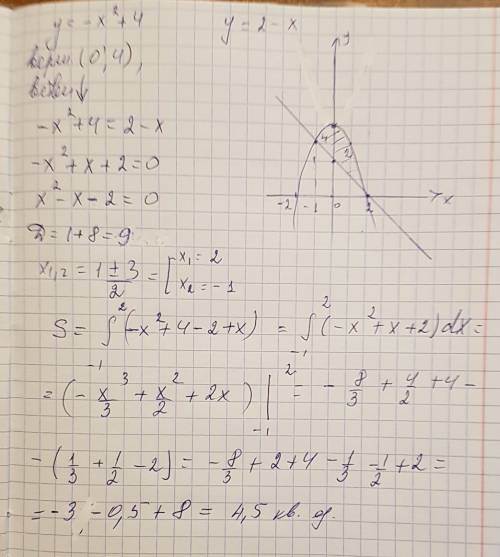 y = -x² + 4    y = 2 - x
верш (0; 4),
ветви ↓
-x² + 4 = 2 - x
-x² + x + 2 = 0
x² - x - 2 = 0
D = 1 + 8 = 9
x₁,₂ = (1 ± 3)/2 = [ x₁ = 2
x₂ = -1
y
x
-2 -1 0 2
S = ∫₋₁² (-x² + 4 - 2 + x) = ∫₋₁² (-x² + x + 2) dx =
= (- x³/3 + x²/2 + 2x) |₋₁² = - 8/3 + 4/2 + 4 -
- (1/3 + 1/2 - 2) = -8/3 + 2 + 4 - 1/3 - 1/2 + 2 =
= -3 - 0,5 + 8 = 4,5 кв. ед.